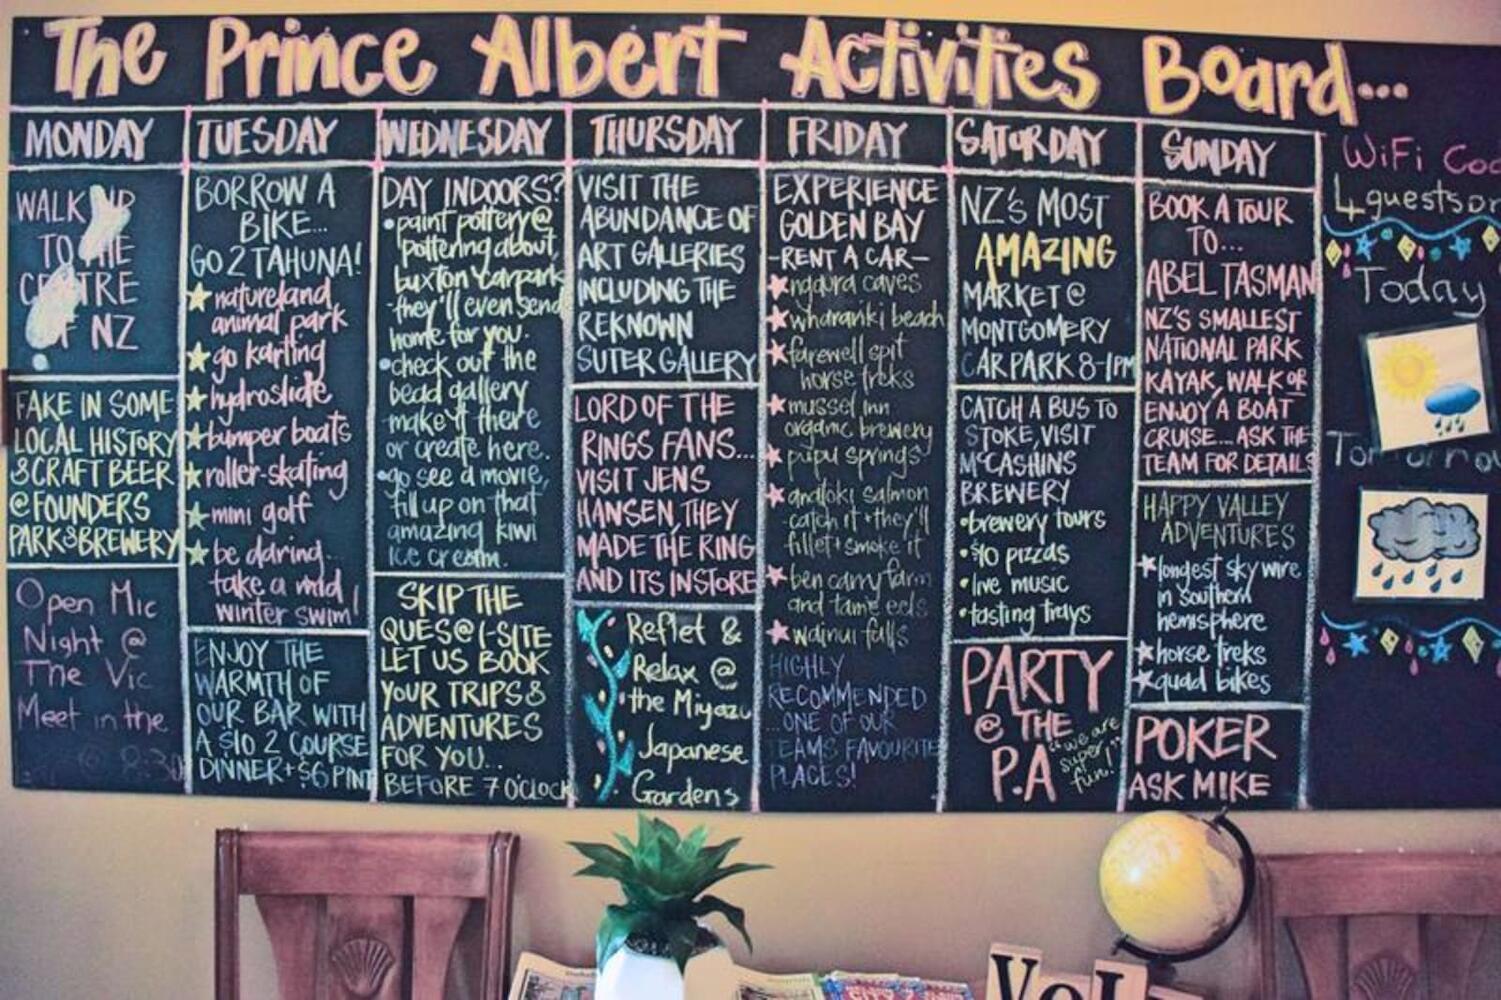 The Prince Albert Activities Board...
MONDAY
WALK UP
TO THE
CENTRE
OF NZ
FAKE IN SOME
LOCAL HISTORY
& CRAFT BEER
@ FOUNDERS
PARK & BREWERY
Open Mic
Night @
The Vic
Meet in the
@ 8:30
TUESDAY
BORROW A
BIKE...
GO 2 TAHUNA!
natureland
animal park
go karting
hydroslide
bumper boats
roller-skating
mini golf
be daring...
take a mid
winter swim!
ENJOY THE
WARMTH OF
OUR BAR WITH
A $10 2 COURSE
DINNER + $6 PINT
WEDNESDAY
DAY INDOORS?
• paint pottery @
pottering about,
buxton carpark
- they'll even send
home for you.
• check out the
bead gallery
make it there
or create here.
• go see a movie,
fill up on that
amazing kiwi
ice cream.
SKIP THE
QUES @ I-SITE
LET US BOOK
YOUR TRIPS &
ADVENTURES
FOR YOU...
BEFORE 7 O'CLOCK
THURSDAY
VISIT THE
ABUNDANCE OF
ART GALLERIES
INCLUDING THE
REKNOWN
SUTER GALLERY
LORD OF THE
RINGS FANS...
VISIT JENS
HANSEN, THEY
MADE THE RING
AND ITS INSTORE
Reflet &
Relax @
the Miyazu
Japanese
Gardens
FRIDAY
EXPERIENCE
GOLDEN BAY
-RENT A CAR-
ngaura caves
wharariki beach
farewell spit
horse treks
mussel inn
organic brewery
pupu springs
anatoki salmon
-catch it + they'll
fillet + smoke it
ben carry farm
and tame eels
wainui falls
HIGHLY
RECOMMENDED
...ONE OF OUR
TEAMS FAVOURITE
PLACES!
SATURDAY
NZ'S MOST
AMAZING
MARKET @
MONTGOMERY
CARPARK 8-1PM
CATCH A BUS TO
STOKE, VISIT
McCASHINS
BREWERY
• brewery tours
• $10 pizzas
• live music
• tasting trays
PARTY
@ THE
P.A
"we are
super
fun!"
SUNDAY
BOOK A TOUR
TO...
ABEL TASMAN
NZ'S SMALLEST
NATIONAL PARK
KAYAK, WALK OR
ENJOY A BOAT
CRUISE... ASK THE
TEAM FOR DETAILS
HAPPY VALLEY
ADVENTURES
longest skywire
in southern
hemisphere
horse treks
quad bikes
POKER
ASK MIKE
WiFi Coo
4 guests or
Today
Tomorrow
VOL